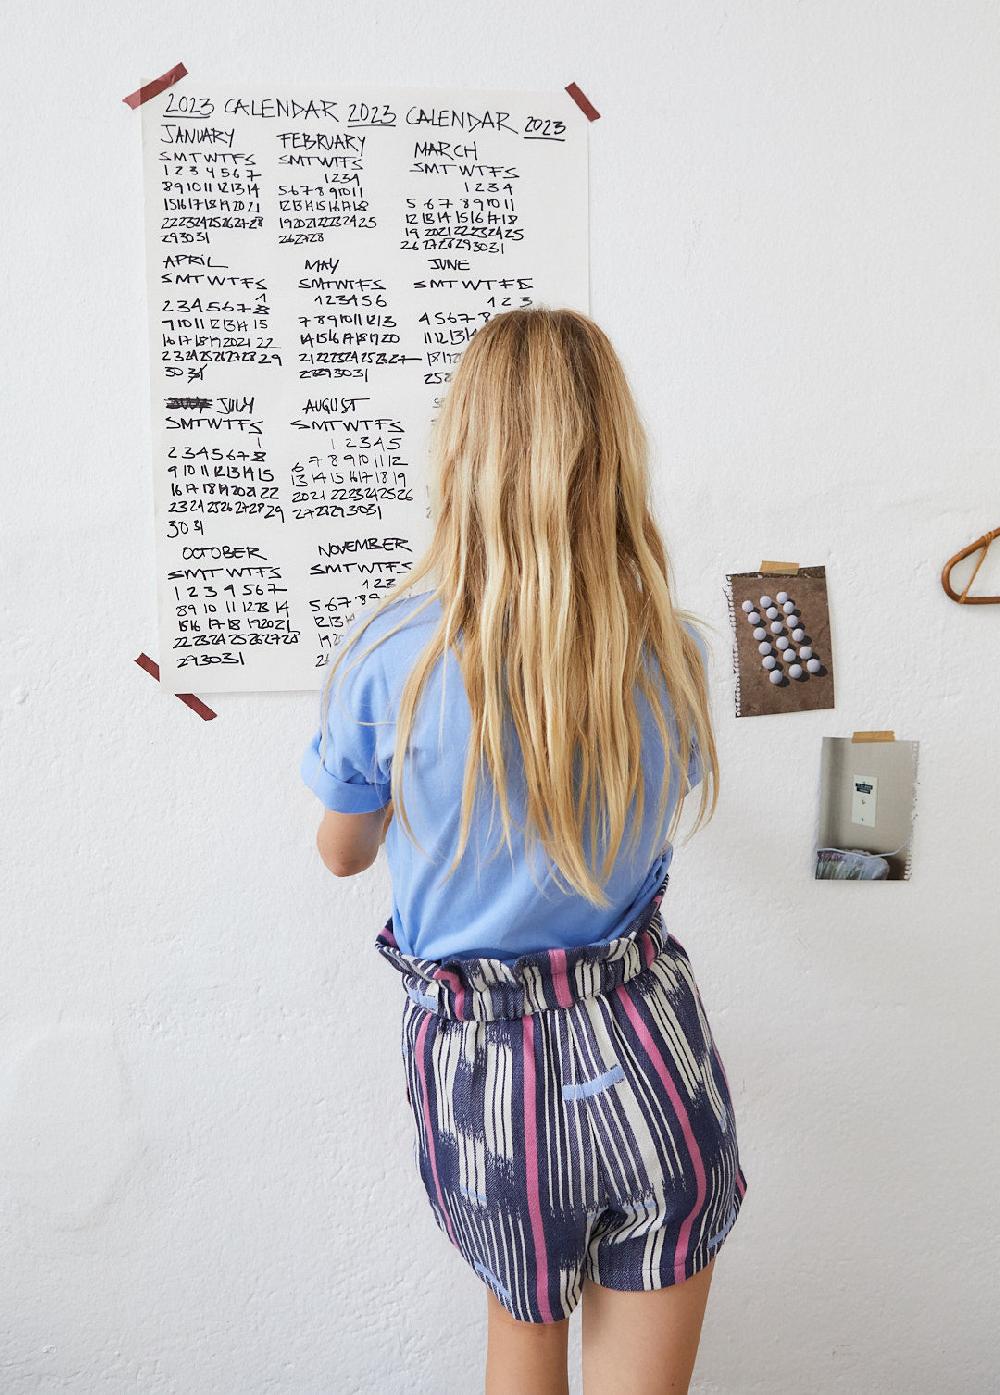 2023 CALENDAR 2023 CALENDAR 2023
JANUARY
SMTWTFS
1 2 3 4 5 6 7
8 9 10 11 12 13 14
15 16 17 18 19 20 21
22 23 24 25 26 27 28
29 30 31
FEBRUARY
SMTWTFS
1 2 3 4
5 6 7 8 9 10 11
12 13 14 15 16 17 18
19 20 21 22 23 24 25
26 27 28
MARCH
SMTWTFS
1 2 3 4
5 6 7 8 9 10 11
12 13 14 15 16 17 18
19 20 21 22 23 24 25
26 27 28 29 30 31
APRIL
SMTWTFS
1
2 3 4 5 6 7 8
9 10 11 12 13 14 15
16 17 18 19 20 21 22
23 24 25 26 27 28 29
30
MAY
SMTWTFS
1 2 3 4 5 6
7 8 9 10 11 12 13
14 15 16 17 18 19 20
21 22 23 24 25 26 27
28 29 30 31
JUNE
SMTWTFS
1 2 3
4 5 6 7 8
11 12 13 14
25
JULY
SMTWTFS
1
2 3 4 5 6 7 8
9 10 11 12 13 14 15
16 17 18 19 20 21 22
23 24 25 26 27 28 29
30 31
AUGUST
SMTWTFS
1 2 3 4 5
6 7 8 9 10 11 12
13 14 15 16 17 18 19
20 21 22 23 24 25 26
27 28 29 30 31
OCTOBER
SMTWTFS
1 2 3 4 5 6 7
8 9 10 11 12 13 14
15 16 17 18 19 20 21
22 23 24 25 26 27 28
29 30 31
NOVEMBER
SMTWTFS
1 2 3
5 6 7 8 9
12 13
19